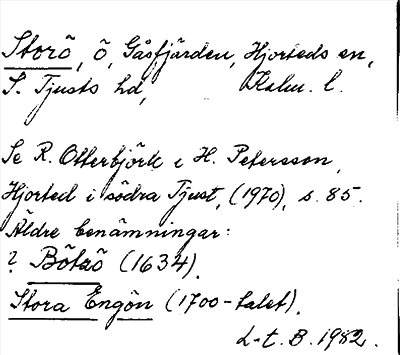 Storö, ö, Gåsfjärden, Hjorteds sn,
S. Tjusts hd, Kalm. l.
Se R. Otterbjörk i H. Petersson,
Hjorted i södra Tjust, (1970), s. 85.
Äldre benämningar:
? Bötsö (1634).
Stora Engön (1700-talet).
L-t. B. 1982.